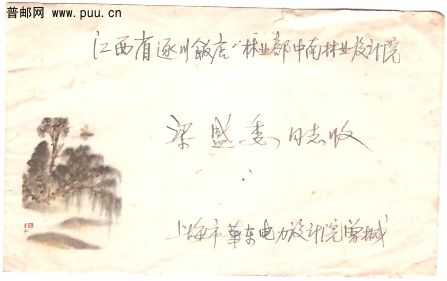 普邮网 www.puu.cn
江西省遂川飯店"林业部中南林业设计院
梁盛委同志收
上海市華东电力设计院曾械